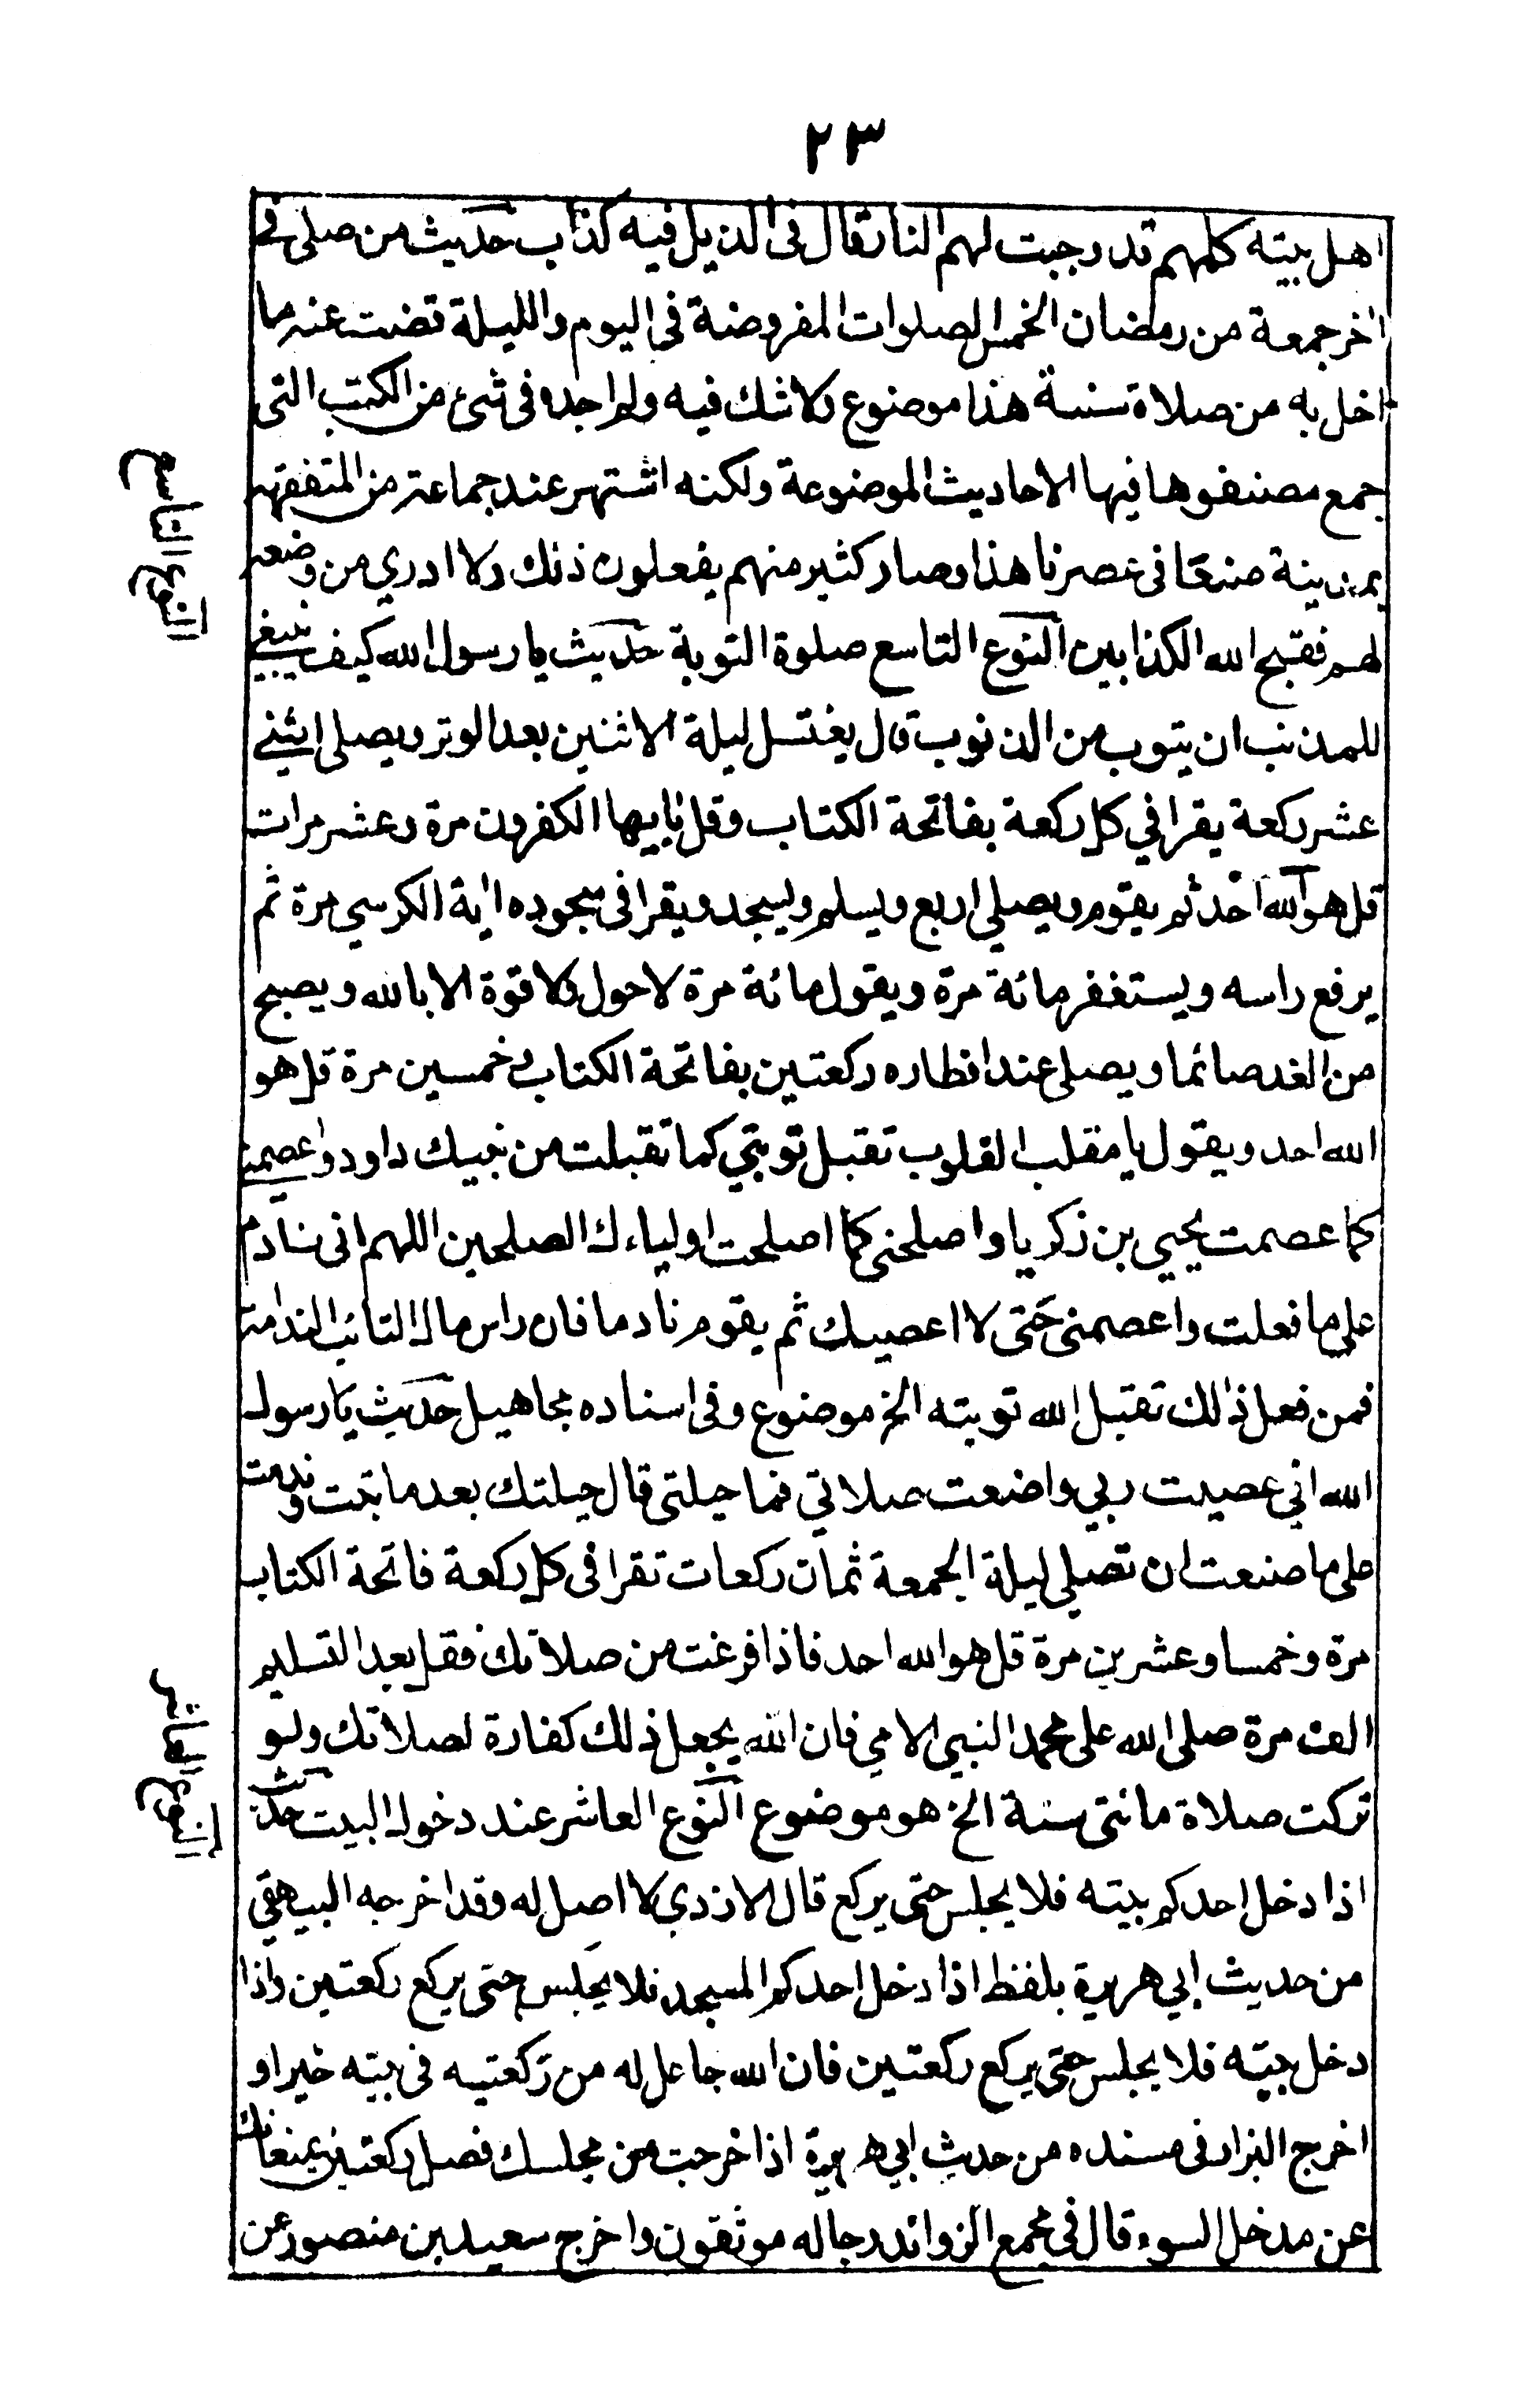 ٢٣
اهل بيته كلهم قد وجبت لهم النار قال فى الذيل فيه كذاب حديث من صلى فى
اخر جمعة من رمضان الخمس الصلوات المفروضة فى اليوم والليلة قضت عنه ما
اخل به من صلاة سنة هذا موضوع لا شك فيه ولم اجده فى شئ من الكتب التى
جمع مصنفوها فيها الاحاديث الموضوعة ولكنه اشتهر عند جماعة من المتفقهة
بمدينة صنعا فى عصرنا هذا وصار كثير منهم يفعلون ذلك ولا ادري من وضعه
لهم فقبح الله الكذابين النوع التاسع صلوة التوبة حديث يا رسول الله كيف ينبغي
النوع التاسع
للمذنب ان يتوب من الذنوب قال يغتسل ليلة الاثنين بعد الوتر ويصلى اثني
عشر ركعة يقرا في كل ركعة بفاتحة الكتاب وقل يايها الكفرون مرة وعشر مرات
قل هو الله احد ثم يقوم ويصلي اربع ويسلم ويسجد ويقرا فى سجوده اية الكرسي مرة ثم
يرفع راسه ويستغفر مائة مرة ويقول مائة مرة لا حول ولا قوة الا بالله ويصبح
من الغد صائما ويصلى عند افطاره ركعتين بفاتحة الكتاب وخمسين مرة قل هو
الله احد ويقول يا مقلب القلوب تقبل توبتي كما تقبلت من نبيك داود واعصمني
كما عصمت يحيي بن زكريا واصلحنى كما اصلحت اولياءك الصلحين اللهم انى نادم
على ما فعلت واعصمنى حتى لا اعصيك ثم يقوم نادما فان راس مال التائب الندامة
فمن فعل ذلك تقبل الله توبته الخ موضوع وفى اسناده مجاهيل حديث يا رسول
الله اني عصيت ربي واضعت صلاتي فما حيلتى قال حيلتك بعد ما تبت وندمت
على ما صنعت ان تصلي ليلة الجمعة ثمان ركعات تقرا فى كل ركعة فاتحة الكتاب
مرة وخمسا وعشرين مرة قل هو الله احد فاذا فرغت من صلاتك فقل بعد التسليم
الف مرة صلى الله على محمد النبى الامي فان الله يجعل ذلك كفارة لصلاتك ولو
تركت صلاة مائتى سنة الخ هو موضوع النوع العاشر عند دخول البيت حديث
النوع العاشر
اذا دخل احدكم بيته فلا يجلس حتى يركع قال الازدي لا اصل له وقد اخرجه البيهقي
من حديث ابي هريرة بلفظ اذا دخل احدكم المسجد فلا يجلس حتى يركع ركعتين واذا
دخل بيته فلا يجلس حتى يركع ركعتين فان الله جاعل له من ركعتيه فى بيته خيرا و
اخرج البزار فى مسنده من حديث ابي هريرة اذا خرجت من مجلسك فصل ركعتين يمنعانك
عن مدخل السوء قال في مجمع الزوائد رجاله موثقون واخرج سعيد بن منصور عن